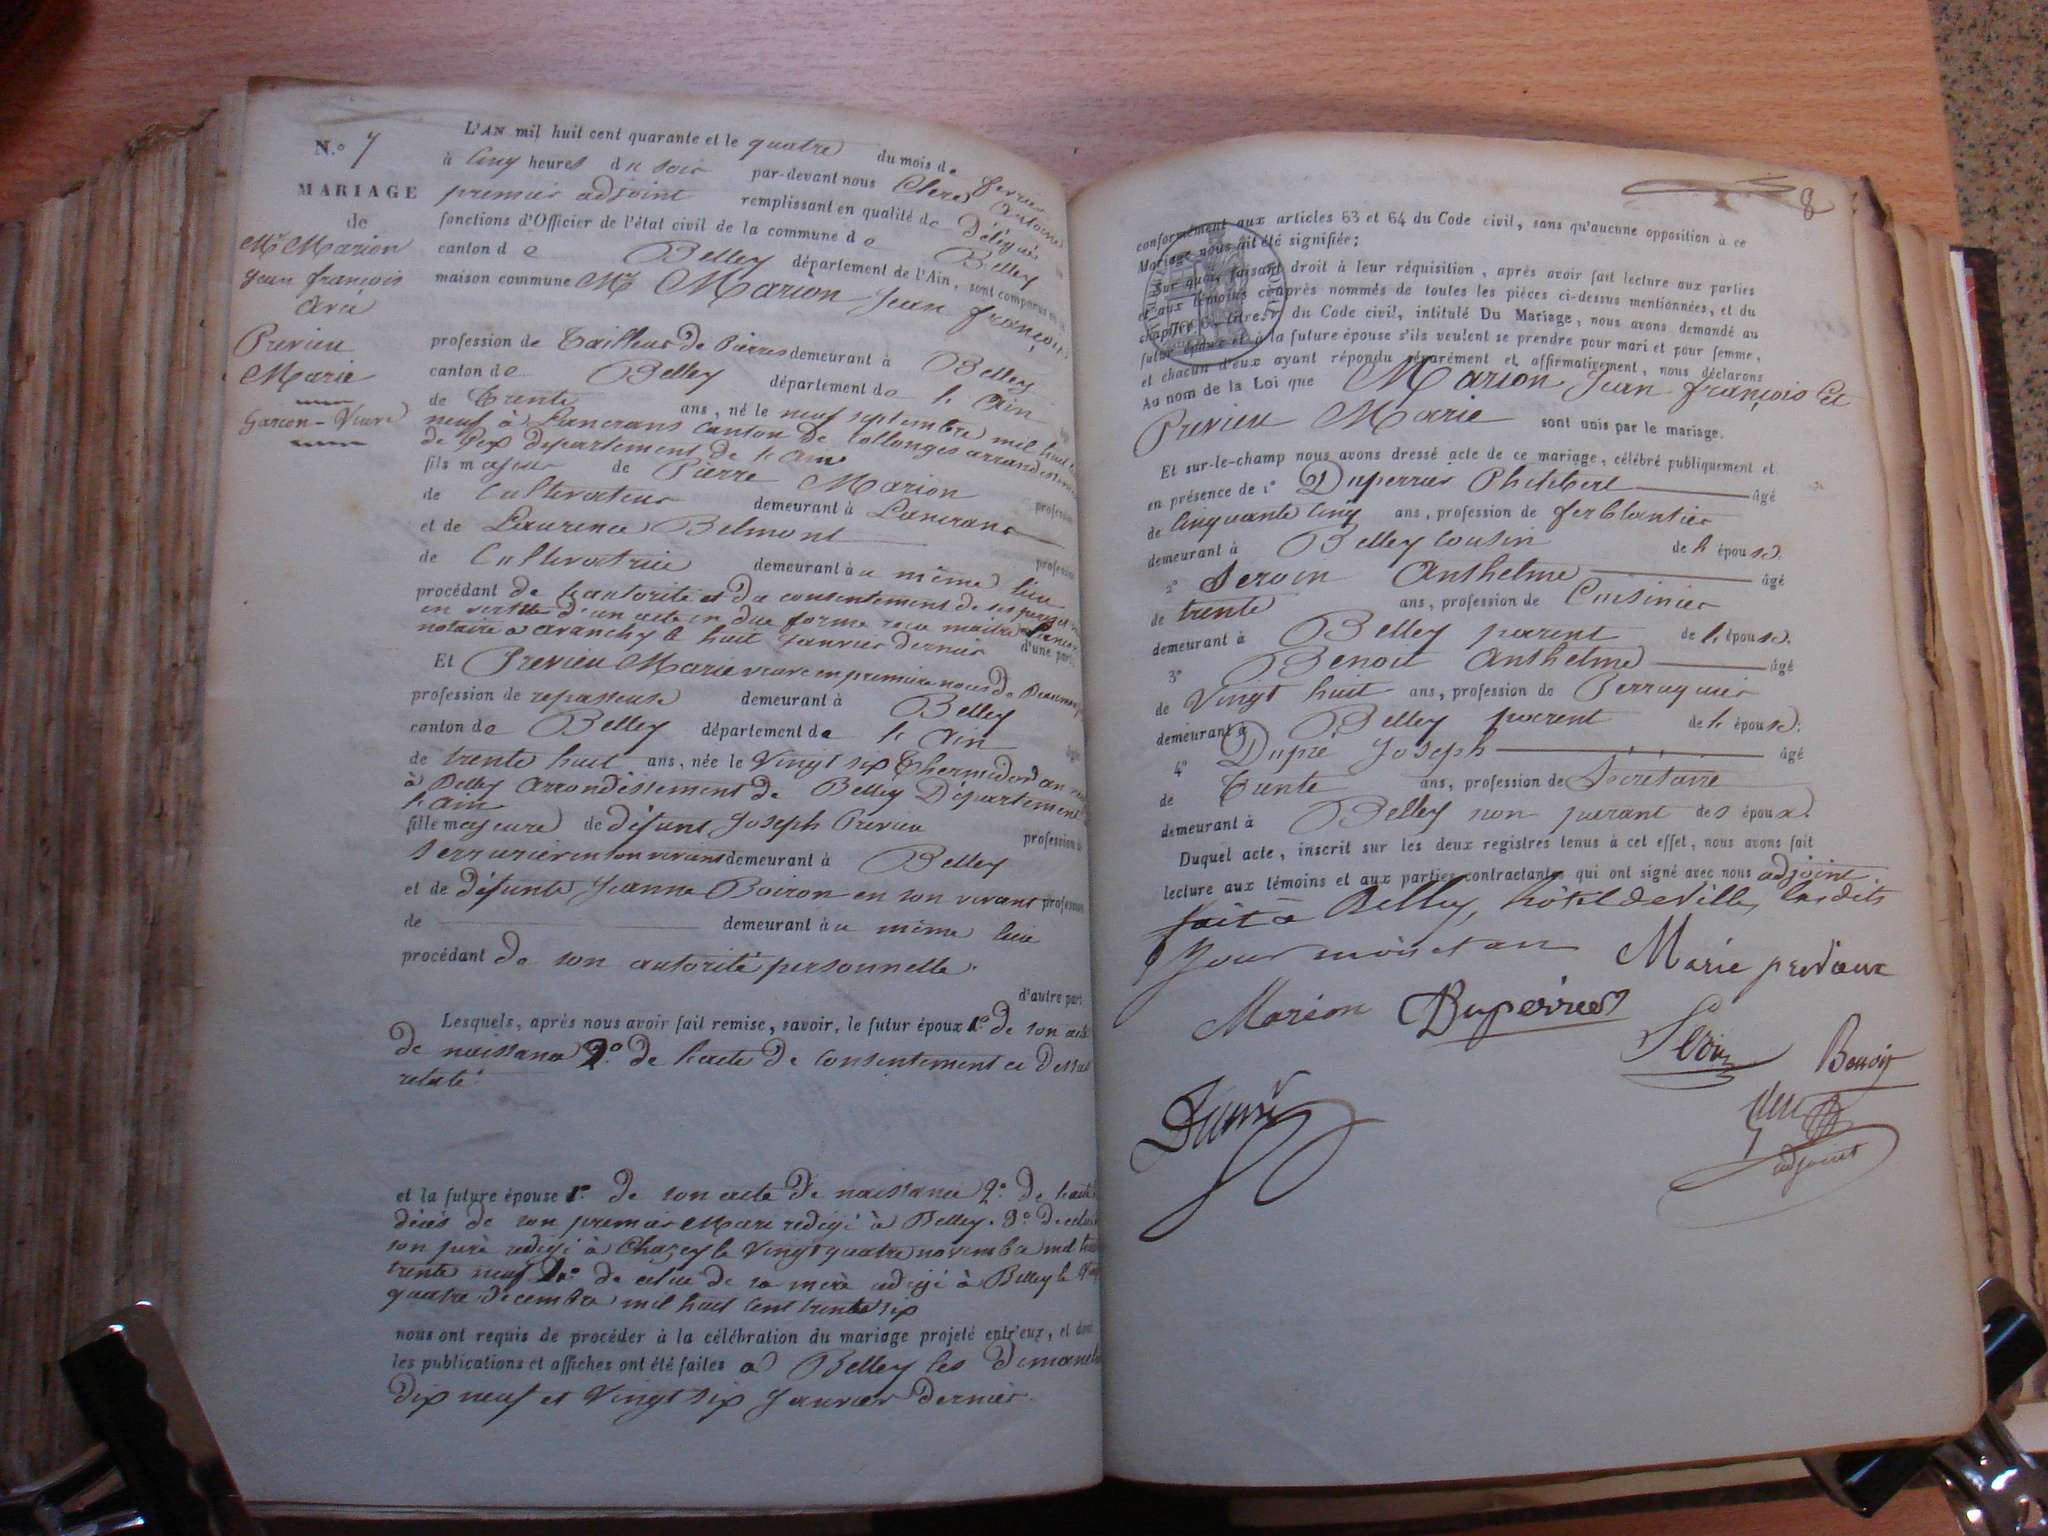 N.o 7
MARIAGE
de
Mr Marion
Jean françois
avec
Previeu
Marie
Garcon - Veuve
L'AN mil huit cent quarante et le quatre du mois de fevrier
à Cinq heures du soir par-devant nous Clerc Antoine
premier adjoint remplissant en qualité de Délégué
fonctions d'Officier de l'état civil de la commune de Belley
canton de Belley département de l'Ain, sont comparus
maison commune Mr Marion Jean françois
profession de Tailleur de Pierres demeurant à Belley
canton de Belley département de l'Ain
de Trente ans, né le neuf septembre mil huit
neuf à Lancrans Canton de Collonges arrondissement
de Gex département de l'ain
fils majeur de Pierre Marion profession
de Cultivateur demeurant à Lancrans
et de Laurence Belmont profession
de Cultivatrice demeurant au même lieu
procédant de l'autorité et du consentement de ses père et
en vertu d'un acte en due forme recu maitre
notaire a le huit Janvier dernier d'une part,
Et Previeu Marie veuve en premiere noces de
profession de repasseuse demeurant à Belley
canton de Belley département de l'Ain
de trente huit ans, née le Vingt six Thermidor an
à Belley Arrondissement de Belley Département
l'ain
fille majeure de défunt Joseph Previeu profession de
Serrurier en son vivant demeurant à Belley
et de défunte Jeanne Boiron en son vivant profession
de demeurant au même lieu
procédant de son autorité personnelle.
d'autre part
Lesquels, après nous avoir fait remise, savoir, le futur époux 1o de son acte
de naissance 2o de l'acte de consentement ci dessus
relaté.
et la future épouse 1o de son acte de naissance 2o de l'acte
décès de son premier Mari redigé à Belley. 3o de celui
son père redigé à Chazey le Vingt quatre novembre mil huit
trente neuf 4o de celui de sa mère redigé à Belley le Vingt
quatre decembre mil huit cent trente six
nous ont requis de procéder à la célébration du mariage projeté entr'eux, et dont
les publications et affiches ont été faites a Belley les Dimanche
Dix neuf et Vingt six Janvier Dernier.
8
conformément aux articles 63 et 64 du Code civil, sans qu'aucune opposition à ce
Mariage nous ait été signifiée;
Sur quoi, faisant droit à leur réquisition, après avoir fait lecture aux parties
et aux témoins ci-après nommés de toutes les pièces ci-dessus mentionnées, et du
chapitre 6, titre 5 du Code civil, intitulé Du Mariage, nous avons demandé au
futur époux et à la future épouse s'ils veulent se prendre pour mari et pour femme,
et chacun d'eux ayant répondu séparément et affirmativement, nous déclarons
Au nom de la Loi que Marion Jean françois Et
Previeu Marie sont unis par le mariage.
Et sur-le-champ nous avons dressé acte de ce mariage, célébré publiquement et
en présence de 1o Duperrier Philibert âgé
de Cinquante Cinq ans, profession de ferblantier
demeurant à Belley cousin de l'épouse.
2o Servin Anthelme âgé
de trente ans, profession de Cuisinier
demeurant à Belley parent de l'épouse.
3o Benoit Anthelme âgé
de Vingt huit ans, profession de Perruquier
demeurant à Belley parent de l'épouse.
4o Dupré Joseph âgé
de Trente ans, profession de Secrétaire
demeurant à Belley non parant des époux.
Duquel acte, inscrit sur les deux registres tenus à cet effet, nous avons fait
lecture aux témoins et aux parties contractantes qui ont signé avec nous adjoint
fait à Belley, hôtel de Ville, les dits
Jour mois et an Marie previeux
Marion Duperrier
Benoit
Dupré
adjoint